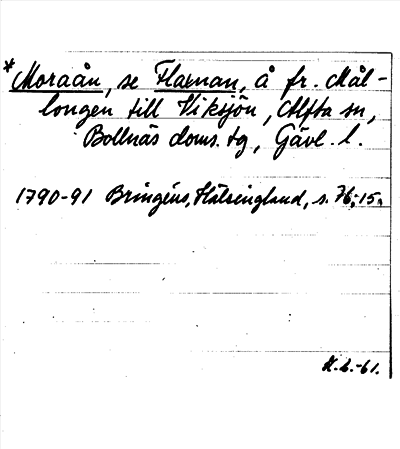 *Moraån, se Flaman, å fr. Mål-
longen till Viksjön, Alfta sn,
Bollnäs doms. tg, Gävl. l.
1790-91 Bringéus, Hälsingland, s. 76; 15.
-61.